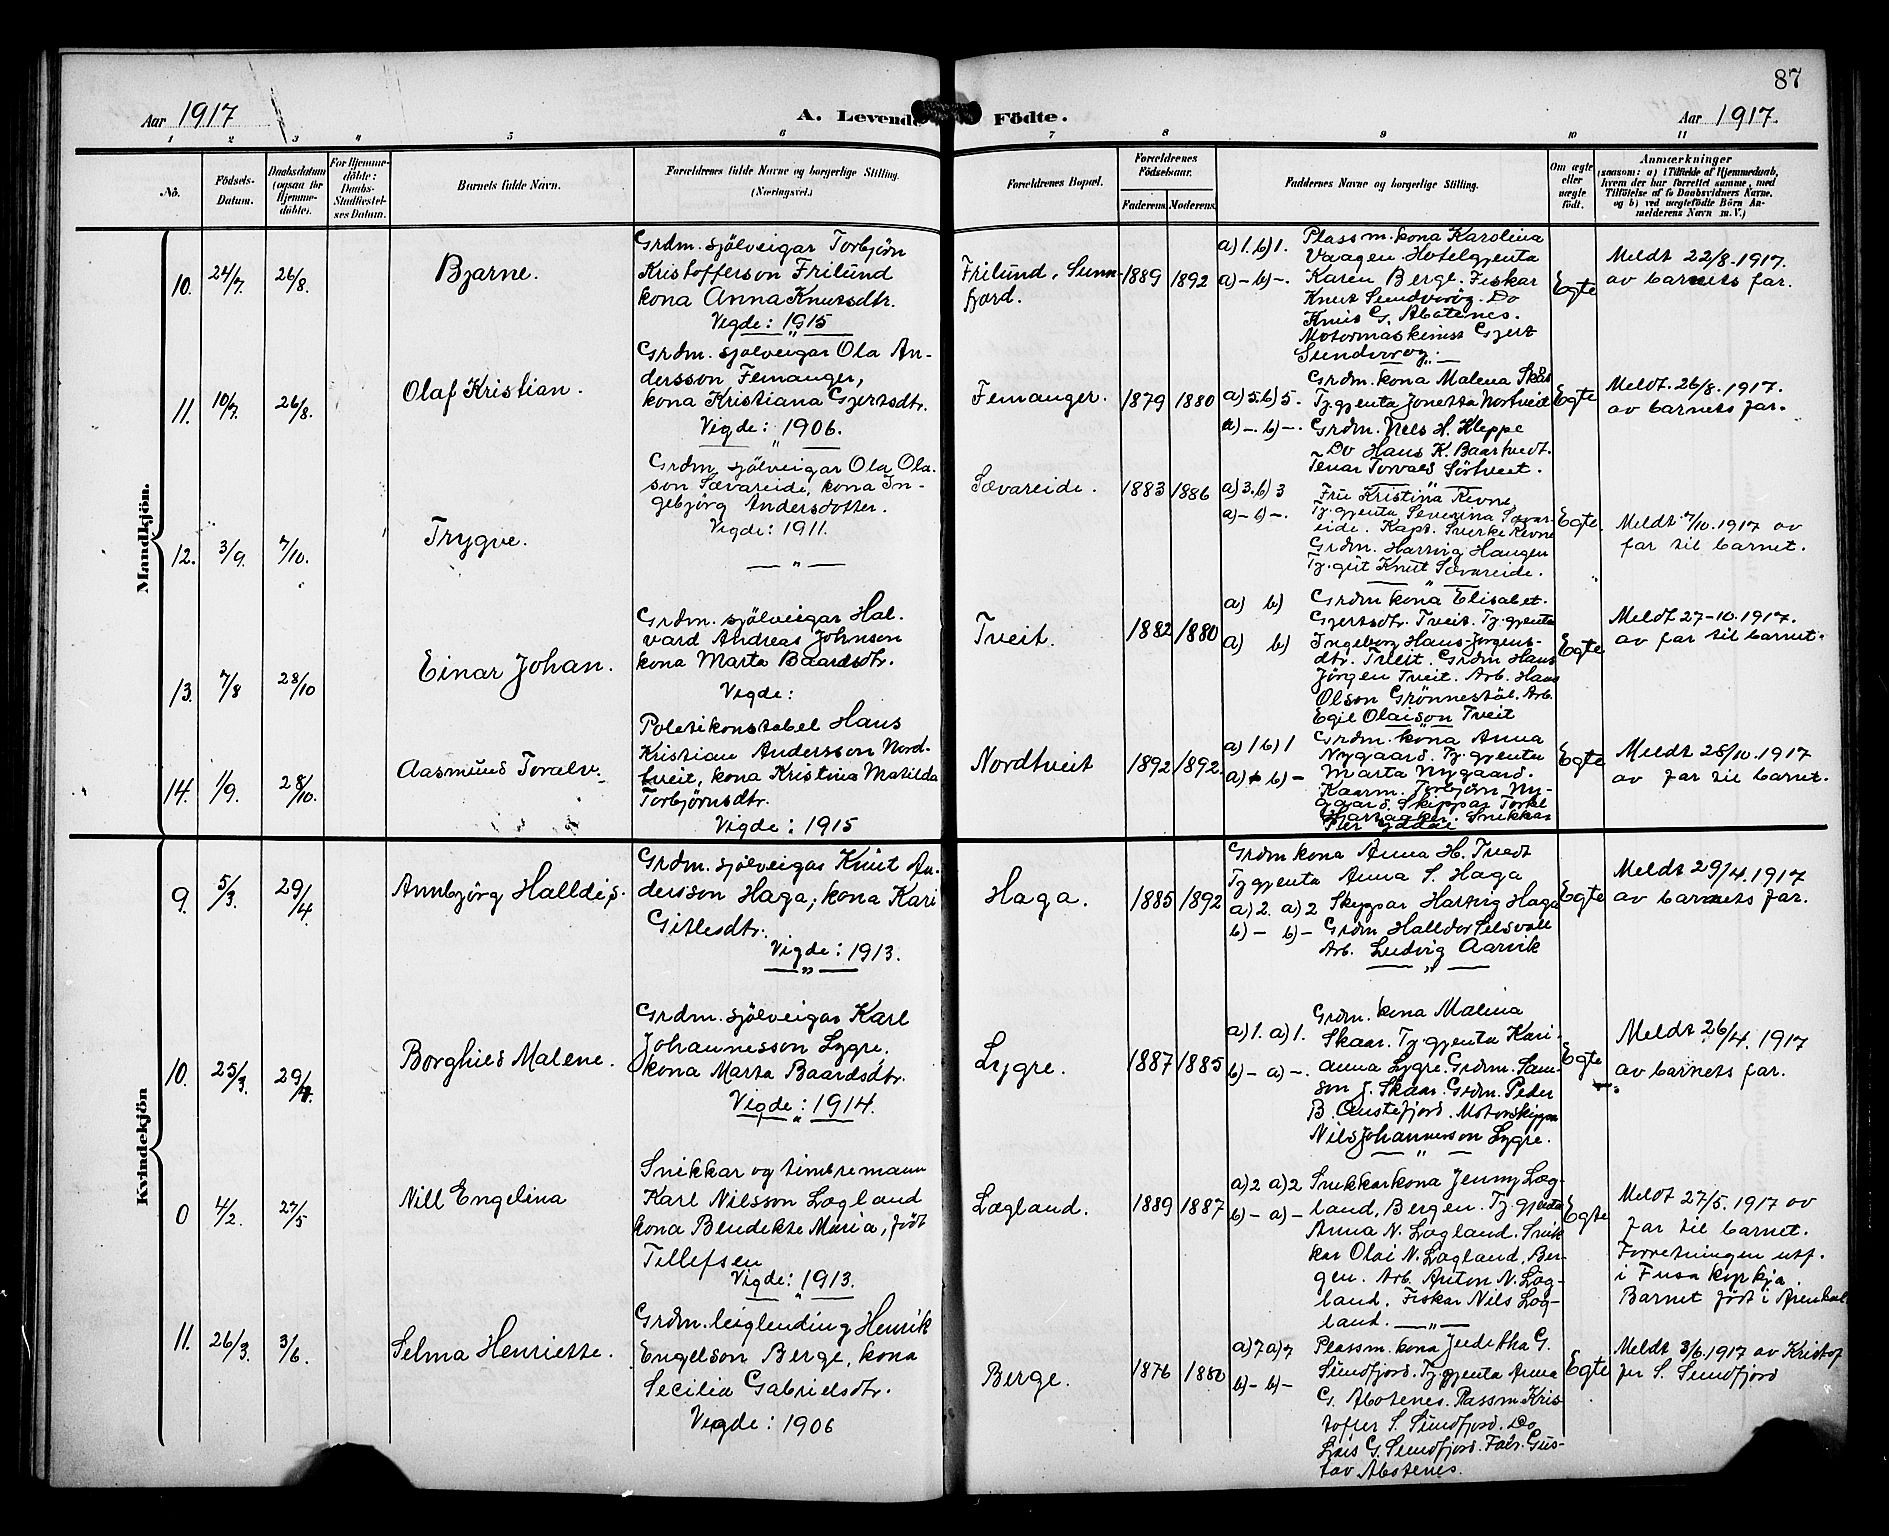 87
Aar 1917
A. Levende Födte.
Aar 1917.
1 2 3 " 5 6 7 8 9 10 11
No.
Födsels-
Datum.
Daabsdatum
(ogsaa for
Hjemme-
döbte).
For Hjemme-
döbte:
Daabs-
Stadfæstel-
ses Datum.
Barnets fulde Navn.
Forældrenes fulde Navne og borgerlige Stilling.
(Næringsvei.)
Forældrenes Bopæl.
Forældrenes
Födselsaar.
Faderens. Moderens.
Faddernes Navne og borgerlige Stilling.
Om ægte
eller
uægte
födt.
Anmærkninger
(saasom: a) i Tilfælde af Hjemmedaab,
hvem der har forrettet samme, med
Tilföielse af to Daabsvidners Navne,
og b) ved uægtefödte Börn An-
melderens Navn m. V.)
Mandkjön.
10. 24/7. 26/8.
Bjarne.
Grdm. sjölveigar Torbjörn
Kristofferson Frilund
kona Anna Knutsdtr.
Vigde: 1915
Frilund, Sunn-
fjord.
1889 1892
a) 1. b) 1.
a) - b) -.
Plassm. kona Karolina
Vaagen. Hotelgjenta
Karen Berge. Fiskar
Knut Sundvorög. Do
Knut G. Abotenes.
Motormaskinist Gjert
Sundvorog.
Egte
Meldt 22/8. 1917.
av barnets far.
11. 10/7. 26/8.
Olaf Kristian.
Grdm. sjölveigar Ola An-
dersson Femanger,
kona Kristiana Gjertsdtr.
Vigde: 1906.
Femanger.
1879 1880
a) 5. b) 5.
a) -. b) -.
Grdm. kona Malena Skår
Tj. gjenta Jonetta Nortveit
Grdm. Nils H. Kleppe
Do Hans K. Baartvedt.
Tenar Torvald Sörtveit.
Egte
Meldt. 26/8. 1917.
av barnets far.
12. 3/9. 7/10.
Trygve.
Grdm. sjölveigar Ola Ola-
son Sævareide, kona In-
gebjörg Andersdotter.
Vigde: 1911.
Sævareide.
1883 1886
a) 3. b) 3
a) - b) -.
Frú Kristina Revne
Tj. gjenta Severina Sævar-
eide. Kapt. Sverke Revne
Grdm. Hartvig Haugen
Tj. gut Knut Sævareide.
Egte.
Meldt 7/10. 1917 av
far til barnet.
13. 7/8 28/10
Einar Johan.
Grdm. sjölveigar Hal-
vard Andreas Johnson
kona Marta Baardsdtr.
Vigde:
Tveit.
1882 1880
a) b)
a) b)
Grdm kona Elisabet
Gjertsdtr. Tveit. Tj. gjenta
Ingeborg Hans-Jörgens-
dtr. Tveit. Grdm Hans
Jörgen Tveit. Arb. Hans
Olson Grønnestöl. Arb.
Egil Olaison Tveit
Egte
Meldt 27-10. 1917.
av far til barnet.
14. 1/9. 28/10.
Aasmund Toralv.
Poletikonstabel Hans
Kristian Andersson Nord-
tveit, kona Kristina Matilda
Torbjörnsdtr.
Vigde: 1915
Nordtveit
1892 1892.
a) 1 b) 1
a) - b) -
Grdm. kona Anna
Nygaard. Tj. gjenta
Marta Nygaard.
Kaarm. Torbjörn Ny-
gaard. Skippar Torkel
Snikkar
Egte
Meldt 28/10. 1917
av far til barnet.
Kvindekjön
9. 5/3. 29/4.
Annbjörg Halldis.
Grdm. sjölveigar Knut An-
dersson Haga, kona Kari
Gitlesdtr.
Vigde: 1913.
Haga.
1885 1892
a) 2. a) 2
b) - b) -
Grdm kona Anna H. Tvedt
Tj. gjenta Anna S. Haga
Skyppar Hartvig Haga
Grdm Halldor Selsvoll
Arb. Ludvig Aarvik
Egte
Meldt 29/4. 1917
av barnets far.
10. 25/3. 29/4.
Borghild Malene.
Grdm. sjölveigar Karl
Johannesson Lygre.
kona Marta Baardsdtr.
Vigde: 1914.
Lygre.
1887 1885
a) 1. a) 1.
b) - a) -.
Grdm. kona Malina
Skaar. Tj. gjenta Kari-
anna Lygre. Grdm. Sam-
son J. Skaar. Grdm. Peder
B. Austefjord. Motorskippar
Nils Johannesson Lygre.
Egte
Meldt 26/4. 1917
av barnets far.
0 4/2. 27/5
Nill Engelina
Snikkar og timbremann
Karl Nilsson Lægland
kona Bendikte Maria, födt
Tellefsen
Vigde: 1913.
Lægland.
1889 1887
a) 2 a) 2
b) - a) -
Snikkarkona Jenny Læg-
land, Bergen. Tj. gjenta
Anna N. Lægland. Snik-
kar Olai N. Lægland, Ber-
gen. Arb. Anton N. Læg-
land. Fiskar Nils Læg-
land.
Egte
Meldt 27/5. 1917 av
far til barnet.
Forretningen utf.
i Fusa kyrkja.
Barnet födt i Arendal
11. 26/3. 3/6.
Selma Henriette.
Grdm. leiglending Henrik
Engelson Berge, kona
Secilia Gabrielsdtr.
Vigde: 1906
Berge.
1876 1880
a) 7 a) 7
b) - b) -
Plassm. kona Judithha G.
Sundfjord. Tj. gjenta Anna
G. Abotenes. Plassm. Kris-
toffer S. Sundfjord. Do
Lars G. Sundfjord. Fabr. Gus-
tav Abotenes.
Egte
Meldt 3/6. 1917 av Kristof-
fer S. Sundfjord